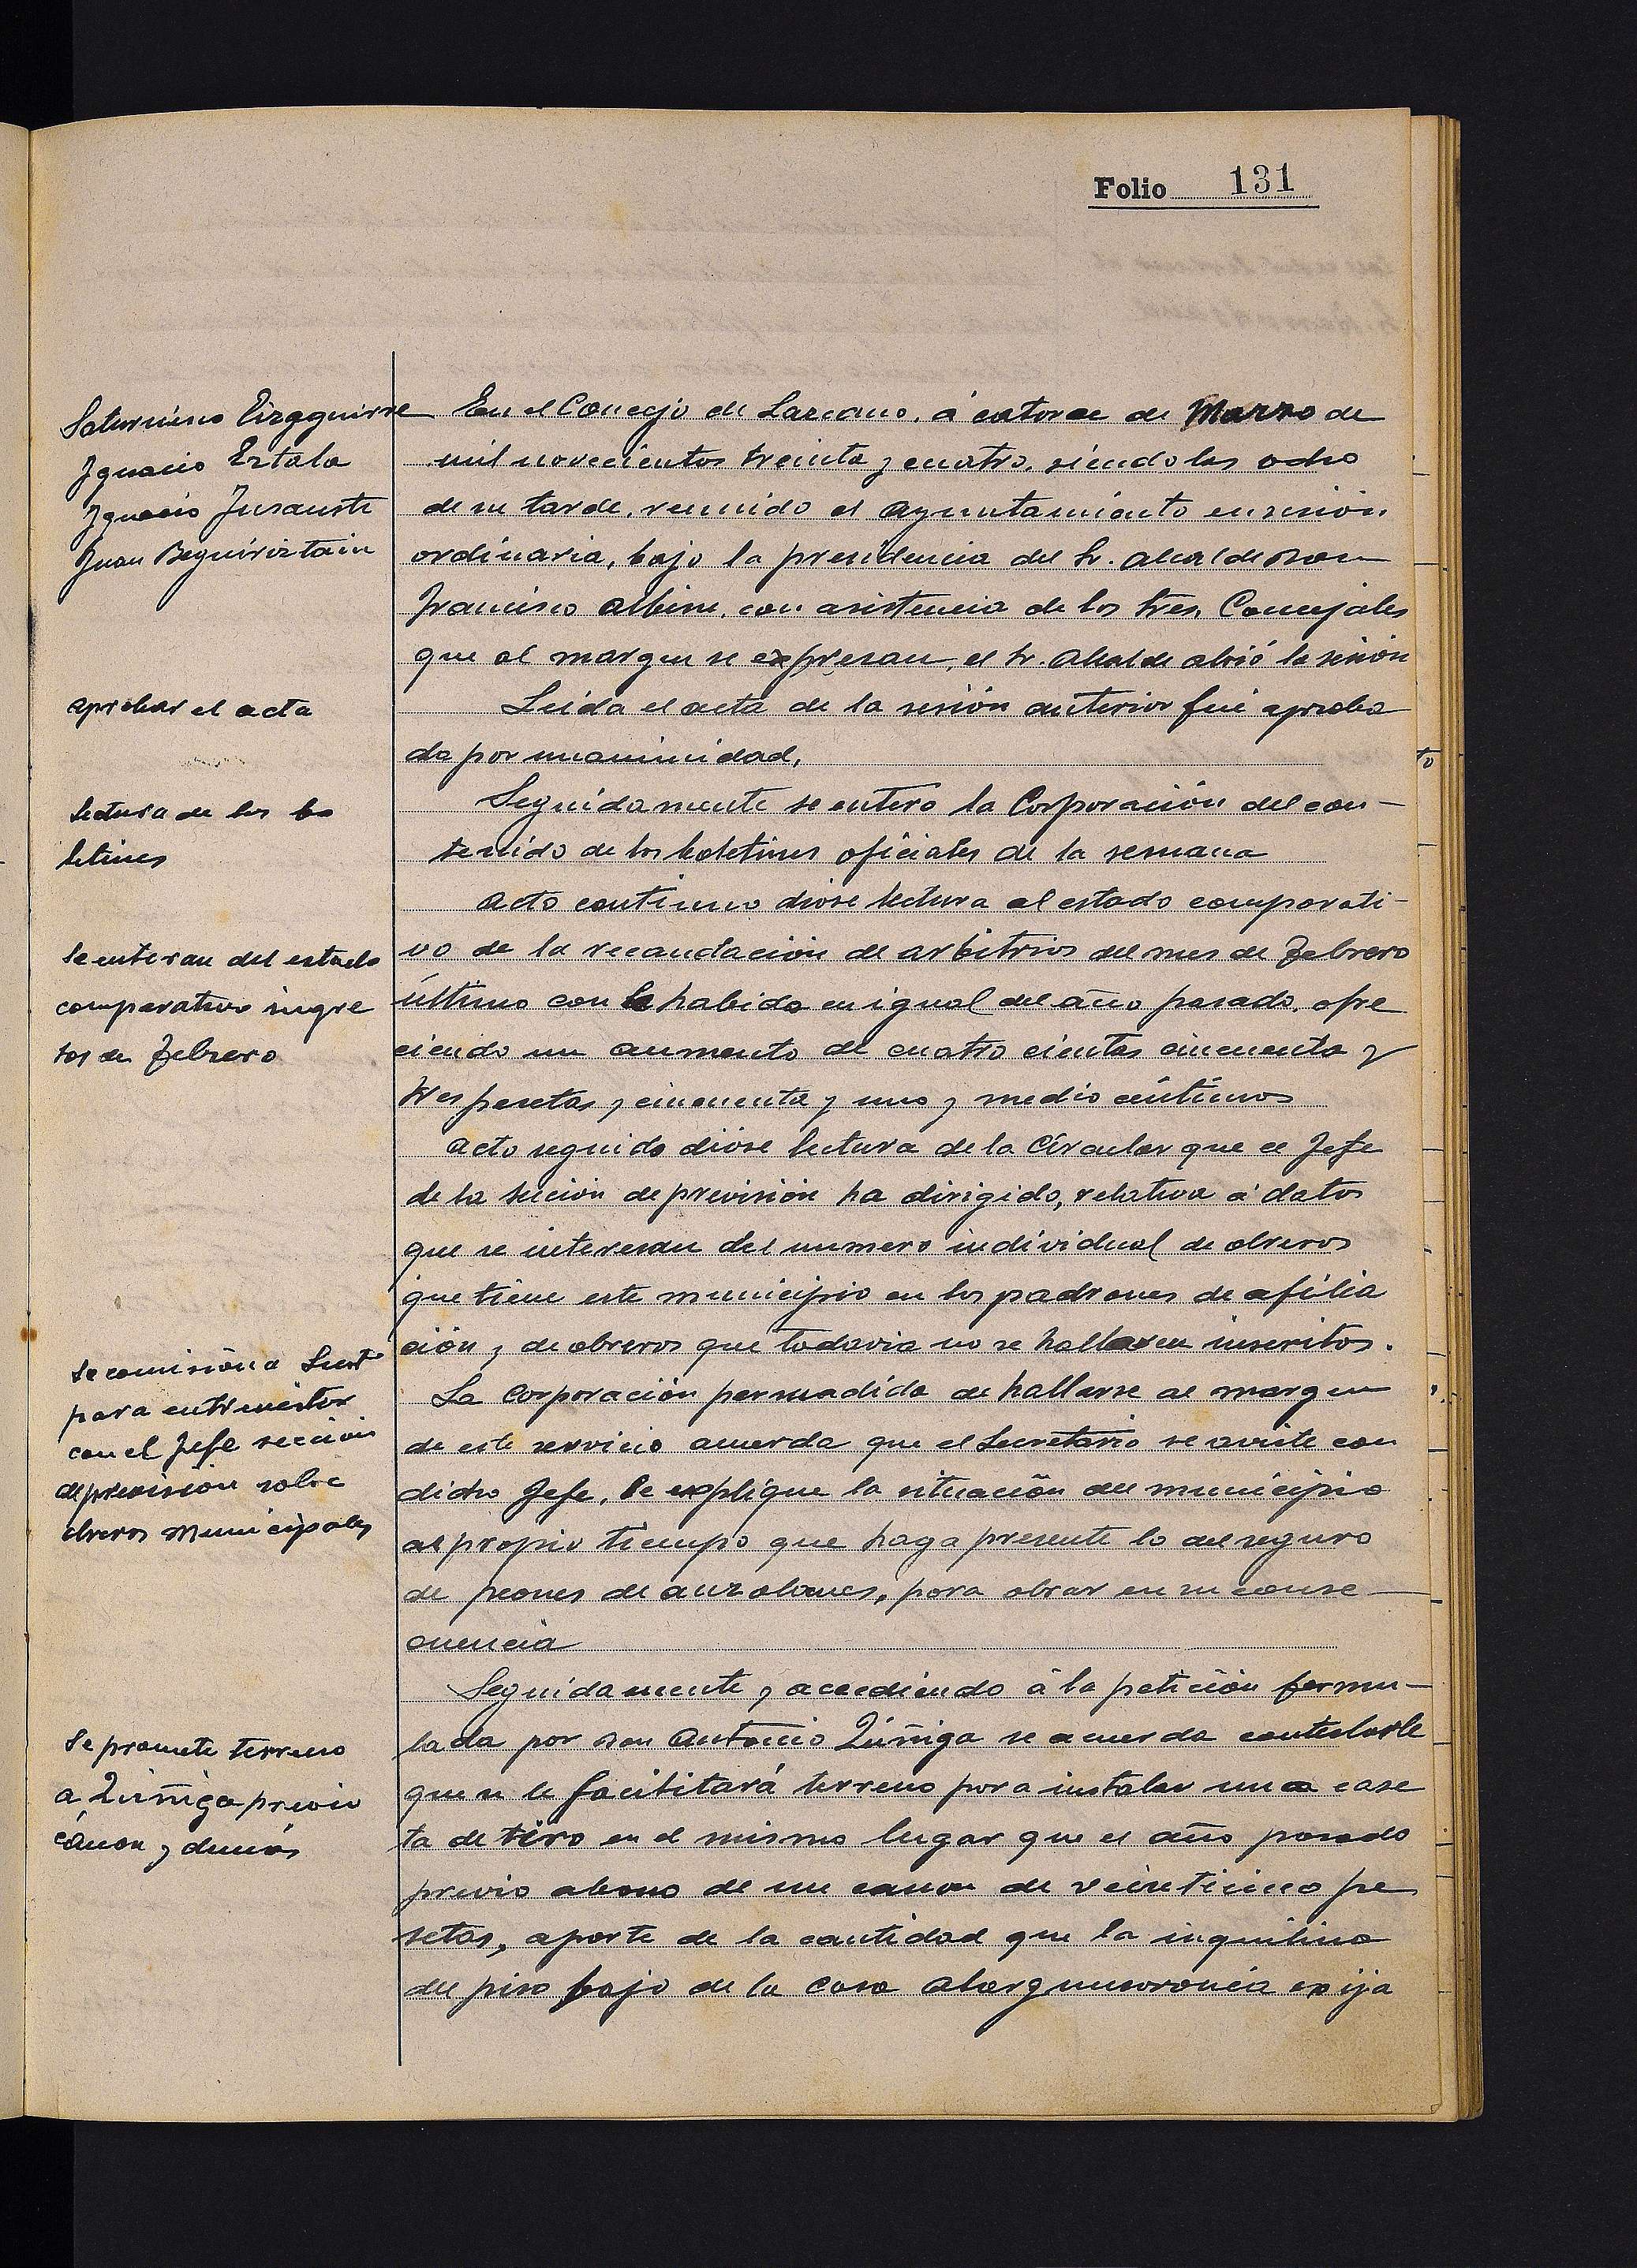 Folio 131
Saturnino Eizaguirre
Ignacio Estala
Ignacio Insausti
Juan Beguiristain
En el Concejo de Lazcano, á catorce de Marzo de
mil novecientos treinta y cuatro, siendo las ocho
de su tarde, reunido el Ayuntamiento en sesión
ordinaria, bajo la presidencia del Sr. Alcalde Don
Francisco Albisu, con asistencia de los tres Concejales
que al margen se expresan, el Sr. Alcalde abrió la sesión
aprobar el acta
Leida el acta de la sesión anterior fué aproba
da por unanimidad,
lectura de los bo
letines
Seguidamente se enteró la Corporación del con-
tenido de los boletines oficiales de la semana
Se enteran del estado
comparativo ingre
sos de Febrero
Acto continuo dióse lectura al estado comparati-
vo de la recaudación de arbitrios del mes de Febrero
último con la habida en igual del año pasado, ofre
ciendo un aumento de cuatro cientas cincuenta y
tres pesetas y cincuenta y uno y medio céntimos
Acto seguido dióse lectura de la Circular que el Jefe
de la sección de previsión ha dirigido, relativa á datos
que se interesan del numero individual de obreros
que tiene este municipio en los padrones de afilia
ción y de obreros que todavia no se hallasen inscritos.
Se comisiona Sect
para entrevistar
con el Jefe sección
de prevision sobre
obreros municipales
La Corporación persuadida de hallarse al margen
de este servicio acuerda que el Secretario se aviste con
dicho Jefe, le explique la situación del municipio
al propio tiempo que haga presente lo del seguro
de peones de auzolanes, para obrar en su conse-
cuencia
Se promete terreno
a Zúñiga previo
cánon y demás
Seguidamente y accediendo á la petición formu-
lada por Don Antonio Zúñiga se acuerda contestarle
que se le facilitará terreno para instalar una case
ta de tiro en el mismo lugar que el año pasado
previo abono de un canon de veinticinco pe
setas, aparte de la cantidad que la inquilina
del piso bajo de la casa exija
to